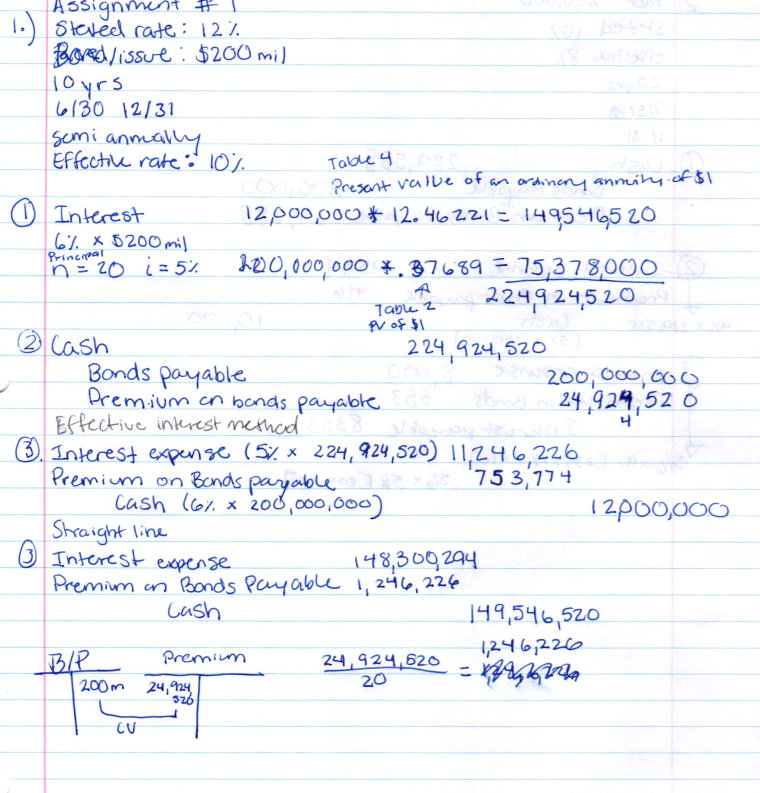 Assignment # 1
1.) Stated rate: 12%
Bond/issue: $200 mil
10 yrs
6/30 12/31
semi annually
Effective rate: 10%
Table 4
Present value of an ordinary annuity of $1
① Interest 12,000,000 * 12.46221 = 149,546,520
6% x $200 mil
Principal
n = 20 i = 5% 200,000,000 * .37689 = 75,378,000
224,924,520
Table 2
PV of $1
② Cash 224,924,520
Bonds payable 200,000,000
Premium on bonds payable 24,924,520
4
Effective interest method
③. Interest expense (5% x 224,924,520) 11,246,226
Premium on Bonds payable 753,774
Cash (6% x 200,000,000) 12,000,000
Straight line
③ Interest expense 148,300,294
Premium on Bonds Payable 1,246,226
Cash 149,546,520
1,246,226
B/P Premium 24,924,520 / 20 =
200m 24,924,520
CV